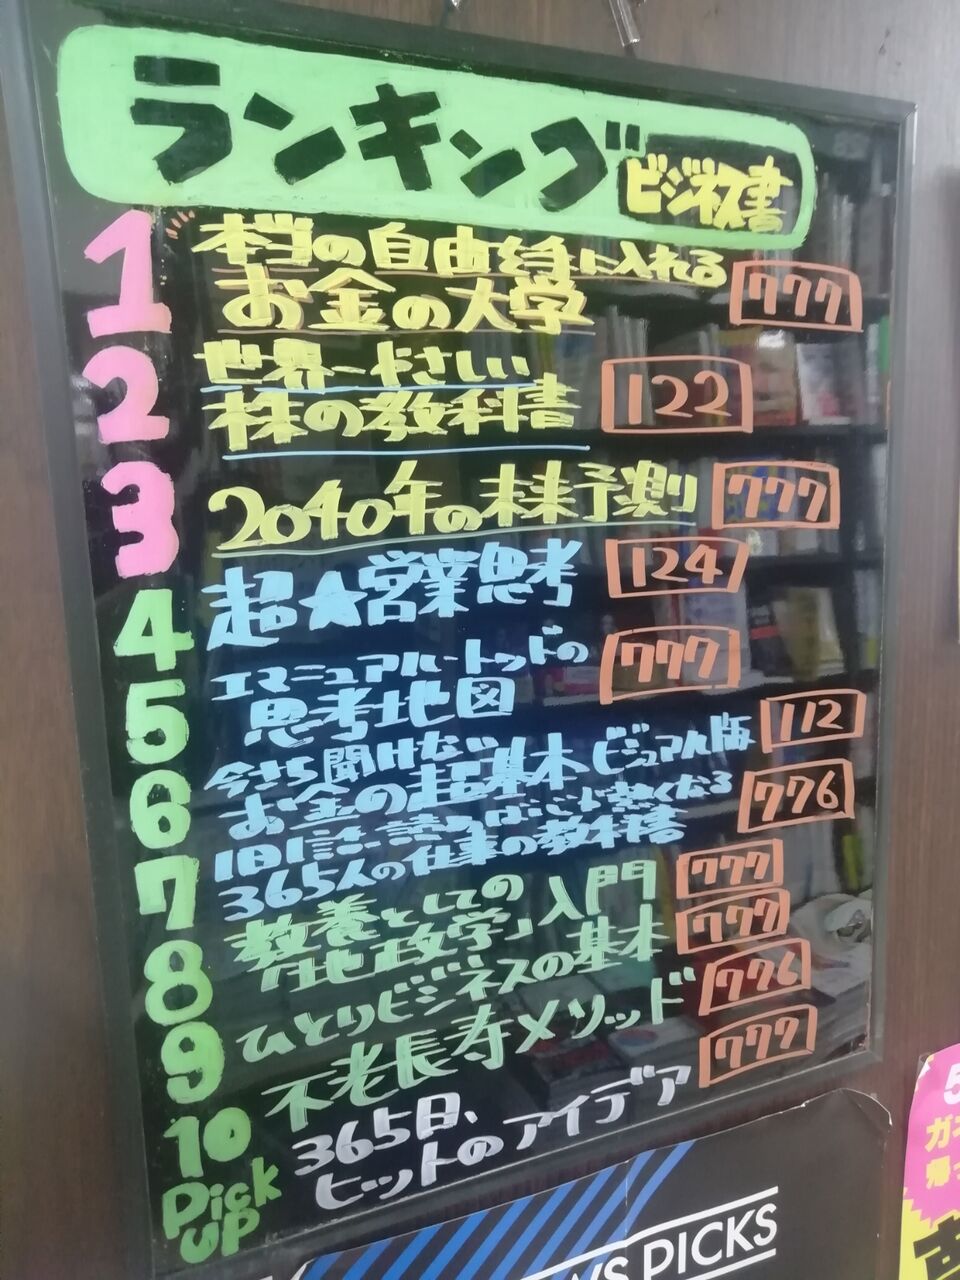 ランキング
ビジネス書
1 本当の自由を手に入れる
お金の大学 777
2 世界一やさしい
株の教科書 122
3 2040年の未来予測 777
4 超★営業思考 124
5 エマニュアル・トッドの
思考地図 777
6 今さら聞けない
お金の超基本 ビジュアル版 112
7 1日1話、読めば心が熱くなる
365人の仕事の教科書 776
8 教養としての
「地政学」入門 777
9 ひとりビジネスの基本 777
10 不老長寿メソッド 776
Pick
UP
365日、
ヒットのアイデア 777
WS PICKS